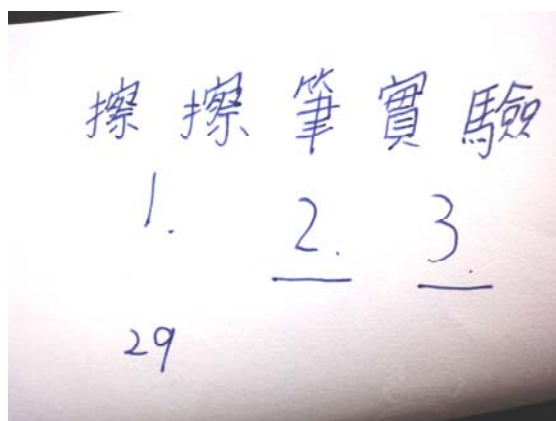 擦擦筆實驗
1. 2. 3.
29